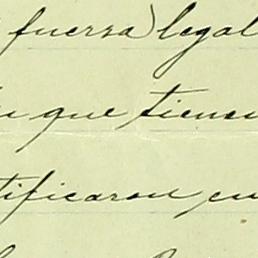 fuerza) legal
que tienen
tificaron en